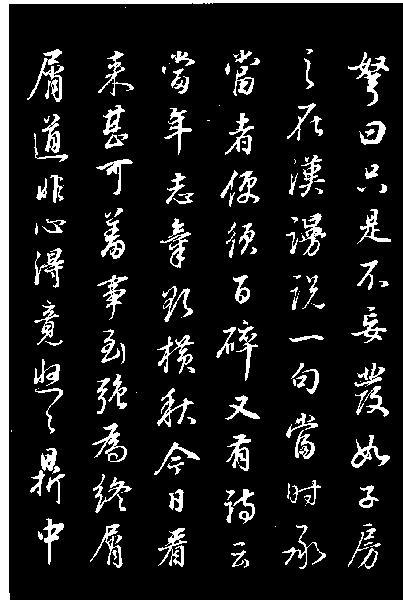 弩曰只是不妄發如子房
之在漢謾說一句當時承
當者便須百碎又有詩云
當年志氣欲橫秋今日看
來甚可羞事到強為終屑
屑道非心得竟悠〻鼎中